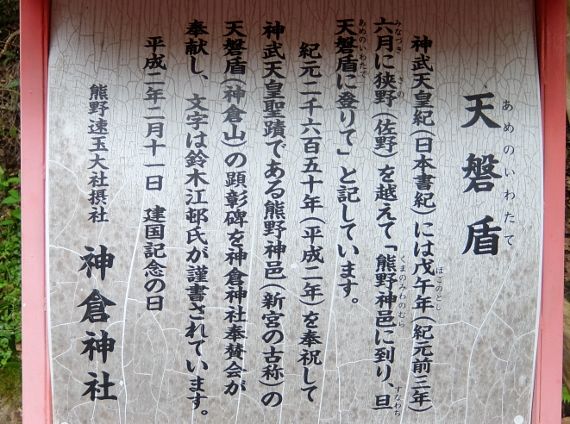 天磐盾
あめのいわたて
神武天皇紀(日本書紀)には戊午年(紀元前三年)
つちのえうまのとし
六月に狭野(佐野)を越えて「熊野神邑に到り、且
みなづき さの くまのみわのむら すなわち
天磐盾に登りて」と記しています。
あめのいわたて
紀元二千六百五十年(平成二年)を奉祝して
神武天皇聖蹟である熊野神邑(新宮の古称)の
天磐盾(神倉山)の顕彰碑を神倉神社奉賛会が
奉献し、文字は鈴木江邨氏が謹書されています。
平成二年二月十一日 建国記念の日
熊野速玉大社摂社 神倉神社